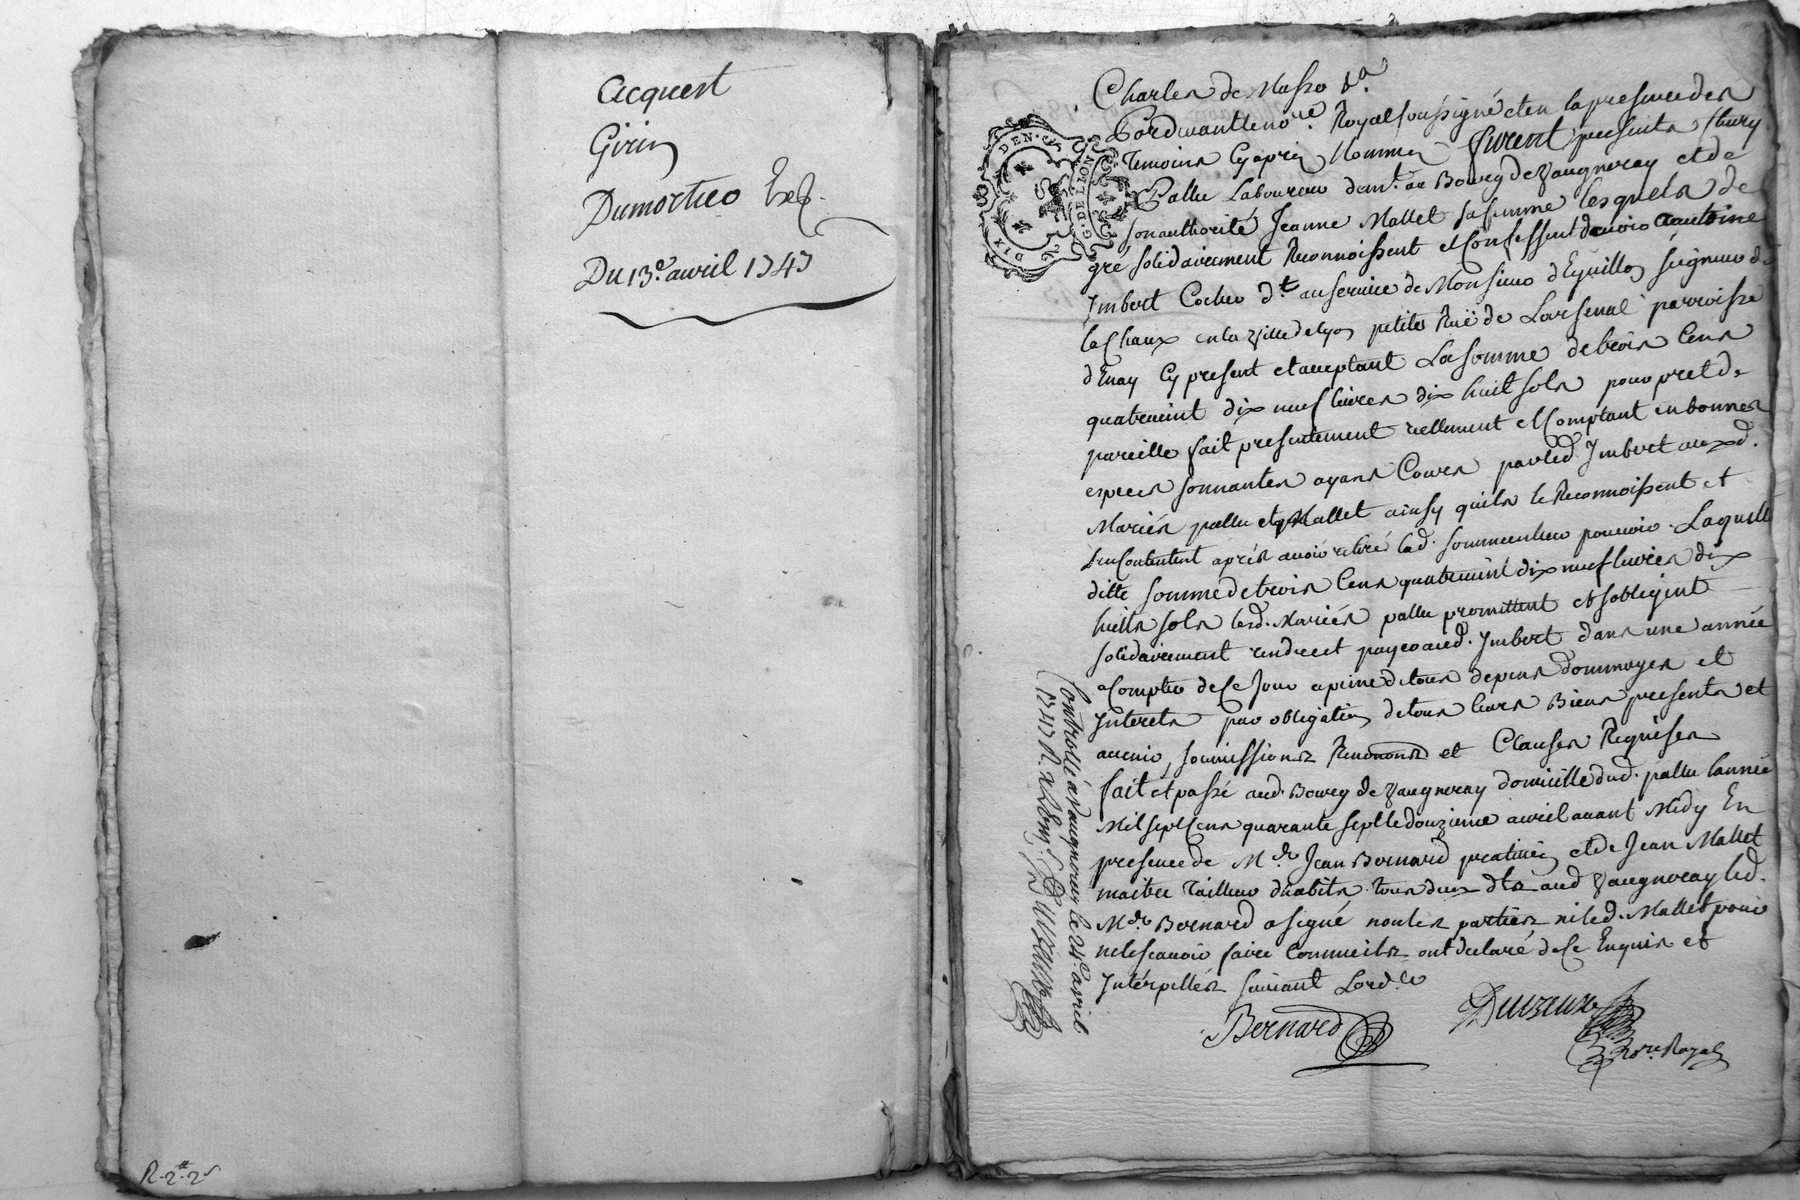 Acquest
Girin
Dumortier Exp.
Du 13e. avril 1747
R. 2# 2s
DIX DEN. G. DE LION
Charles de Masso &a.
Pardevant le no.re Royal soussigné et en la presence des
Temoins Cy aprés Nommés furent presents fleury
Pallu Laboureur dem.t au Bourg de Vaugneray et de
son authorité Jeanne Mallet sa femme lesquels de
gré solidairement Reconnoissent et Confessent devoir a antoine
Jmbert Cocher d.t au service de Monsieur d'Eguillon seigneur de
la Chaux en la Ville de Lyon petite Ruë de L'arsenal parroisse
d'Enay Cy present et acceptant La somme de trois Cens
quatrevint dix neuf livres dix huit sols pour pret de
pareille fait presentement réellement et Comptant en bonnes
especes sonnantes ayans Cours par led. Jmbert auxd.
Mariés pallu et Mallet ainsy quils le Reconnoissent et
s'en Contentent aprés avoir retiré lad. somme en leur pouvoir. Laquelle
ditte somme de trois Cens quatrevint dix neuf livres dix
huits sols lesd. Mariés pallu promettent et s'obligent
solidairement rendre et payer aud. Jmbert dans une année
a Compter de Ce Jour a peine de tous depens dommages et
Jnterets par obligation de tous leurs Biens presents et
avenir, soumissions Renonons et Clauses Requises
fait et passé aud. Bourg de Vaugneray domicille dud. pallu l'année
Mil sept Cens quarante sept le douzieme avril avant Midy En
presence de M.e Jean Bernard praticien et de Jean Mallet
maitre Tailleur d'habits tous deux d.ts aud Vaugneray led.
M.e Bernard a signé non les parties ni led. Mallet pour
ne le scavoir faire Comme ils ont declaré de Ce Enquis et
Jnterpellés suivant L'ord.ce
Bernard
Duvreux
no.re Royal
Controllé a Vaugneray le 24e. avril
1747 R.